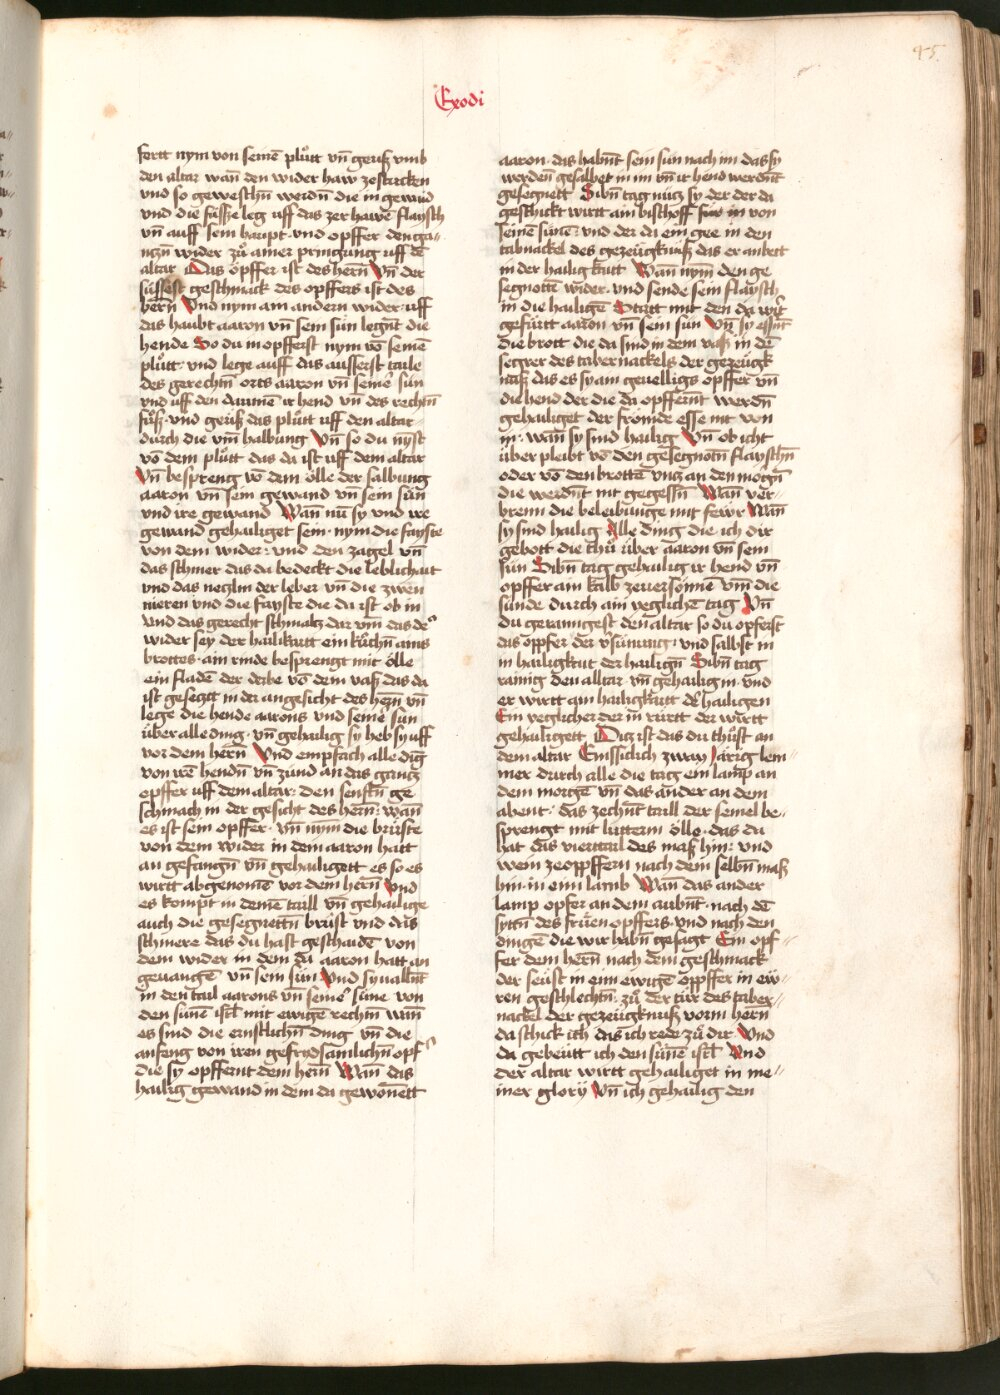 45
Exodi
fertt nym von seinē plůtt vn̄ geusz vmb
den altar wan̄ den wider haw ze stucken
vnd so geweschn̄ werdn̄ die in gewaid
vnd die füsse leg uff das zer hawē flaysch
vn̄ auff sein haupt · vnd opffer den ga-
nczn̄ wider zů ainer pringung uff dē
altar Das opffer ist des hern̄ Vn̄ der
süssest geschmack des opffers ist des
hern̄ Vnd nym am andern wider · uff
das haubt aaron vn̄ sein sün legn̄t die
hende So du in opfferst nym vō seinē
plůtt · vnd lege auff das ausserst taile
des gerechtn̄ orts aaron vn̄ seinē sün
vnd uff den daumē ir hend vn̄ des rechtn̄
fůsz · vnd geusz das plůtt uff den altar
durch die vm̄ halbung Vn̄ so du nyst
vō dem plůtt das da ist uff dem altar
Vn̄ bespreng vō dem ölle der salbung
aaron vn̄ sein gewand vn̄ sein sün
vnd ire gewand Wan̄ nū sy vnd ire
gewand gehailiget sein · nym die fayste
von dem wider · vnd den zagel vn̄
das schmer das da bedeckt die leblichait
vnd das neczlin der leber vn̄ die zwen
nieren vnd die fayste die da ist ob in
vnd das gerecht schmaltz dar vm̄ das dᵉ
wider sey der hailikaitt ein kůchn̄ ains
brottes · ain rinde besprengt mit ölle
ein fladē der derbe vō dem vasz das da
ist gesetzt in der angesicht des hern̄ vn̄
lege die hende aarons vnd seinē sün
über alle ding · vn̄ gehailig sy heb sy uff
vor dem hern̄ Vnd empfach alle dig
von irē hendn̄ vn̄ zünd an das gantz
opffer uff dem altar · den senftn̄ ge
schmach in der gesicht des hern̄ · wan̄
es ist sein opffer · vn̄ nym̄ die brüste
von dem wider in dem aaron hatt
an gefangn̄ vn̄ gehailigett es so es
wirtt abgenomē vor dem hern̄ Vnd
es kompt in deinē taill vn̄ gehailige
auch die gesegnettn̄ brüst vnd das
schmere das du hast geschaidē von
dem wider in dem da aaron hatt an
geuangē vn̄ sein sün Vnd sy vallnt
in den tail aarons vn̄ seinē süne von
den sünē isrl̄ mit ewigē rechtn̄ wan̄
es sind die ernstlichn̄ ding vn̄ die
anfeng von iren gefrydsamlichn̄ opf
die sy opffernt dem hern̄ Wan̄ das
hailig gewand in dem da gewonett
aaron · das habn̄t sein sün nach im das sy
werden̄ gesalbet in im vn̄ ir hend werdn̄t
gesegnett Sibn̄ tag nücz sy der der da
geschickt wirtt ain bischoff für in von
seinē sünē · vnd der da ein gee in den
tabnackel des gezeügknusz das er anbett
in der hailigkaitt Wan̄ nym̄ den ge
segnottē wider · vnd sende sein flaysch
in die hailigē Stett mit den da wir
gefürtt aaron vn̄ sein sün Vn̄ sy essn̄t
die brott die da sind in dem vasz in dē
segrer des tabernackels der gezeügk
nusz das es sy ain geuelligs opffer vn̄
die hend der die da opffernt werdn̄
gehailiget der frömde esse nit von
in · wan̄ sy sind hailig Vn̄ ob icht
über pleibt vō den gesegnotn̄ flayschn̄
oder vō den brottē vncz an den morgn̄
die werdn̄t nit gegessn̄ Wan̄ ver-
brenn die beleibunge mit fewr Wan̄
sy sind hailig Alle ding die ich dir
gebott die thů über aaron vn̄ sein
sün Sibn̄ tag gehailig ir hend vn̄
opffer ain kalb ze uersönē vm̄ die
sünde durch ain yeglichē tag Vn̄
du gerainigest den altar so du opferst
das opffer der v̄sünung · vnd salbst in
in hailigkait der hailign̄ Sibn̄ tag
rainig den alltar vn̄ gehailig in · vnd
er wirtt ain hailigkaitt der hailigen
Ein yeglicher der in rürtt der wirtt
gehailigett Ditz ist das du thůst an
dem altar Emssiclich zway jarig lem-
mer durch alle die tag ein lamp an
dem morgē vn̄ das ander an dem
abent · das zechn̄t taill der semel be-
sprengt mit lutterm ölle · das da
hat das vierttail des masz hin · vnd
wein ze opffern nach dem selbn̄ masz
hin · in eim lamb Wan̄ das ander
lamp opfer an dem aubn̄t · nach dē
syttn̄ des früen opffers · vnd nach den
dingē die wir habn̄ gesagt Ein opf-
fer dem hern̄ nach dem geschmack
der seüst in eim ewigē opffer in ew-
ren geschlechtn̄ · zů der tür des taber-
nackel der gezeügknusz vorm hern̄
da schick ich das ich rede zů dir Vnd
da gebeütt ich den sünē isrl̄ Vnd
der altar wirtt gehailiget in mei-
ner glory Vn̄ ich gehailig den